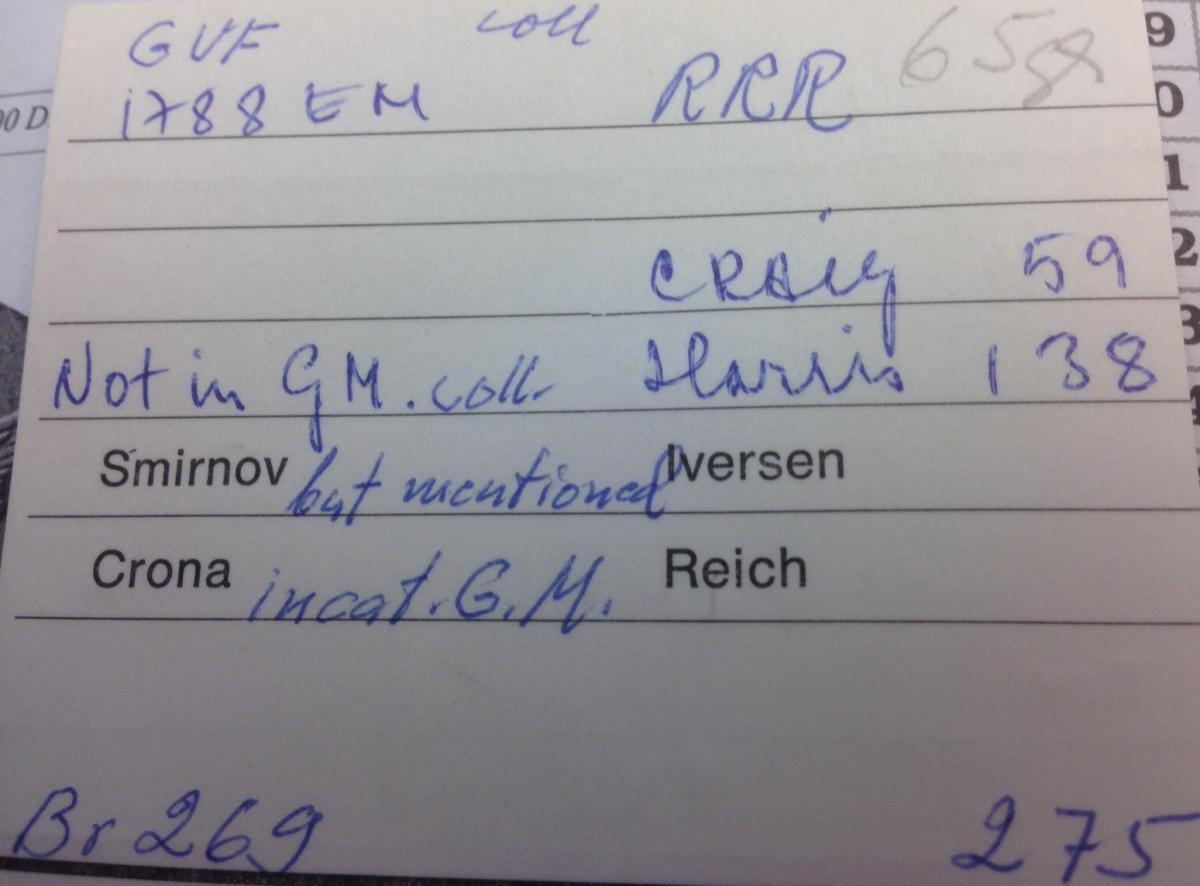 GVF coll
1788 EM RRR 658
CRAig 59
Not in GM. coll. Harris 138
Smirnov but mentioned Iversen
Crona in cat. G.M. Reich
Br 269 275
00 D
9
0
1
2
3